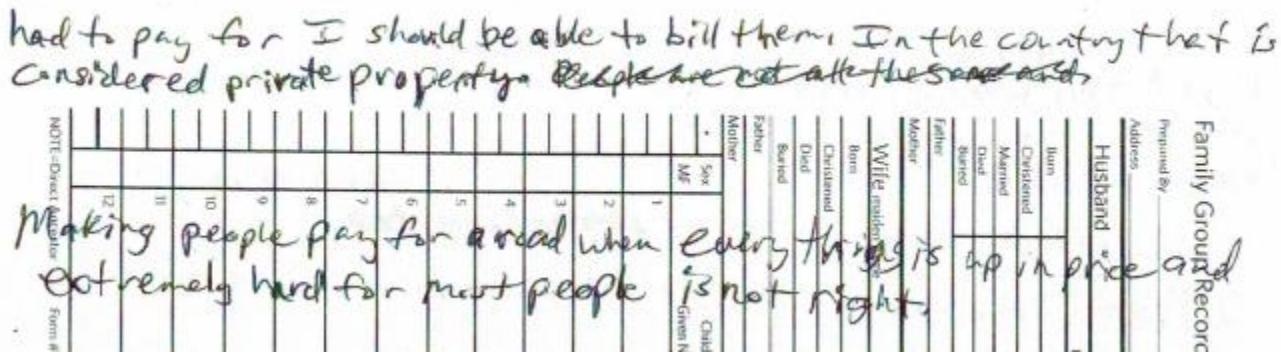 had to pay for I should be able to bill them. In the country that is
considered private property. People are not all the same and
Family Group Record
Prepared By
Address
Husband
Born
Christened
Married
Died
Buried
Father
Mother
Wife
Born
Christened
Died
Buried
Father
Mother
Sex
M/F
Child
Given N
1
2
3
4
5
6
7
8
9
10
11
12
NOTE=Direct Ancestor
Form #
Making people pay for a road when every things is up in price and
extremely hard for most people is not right.